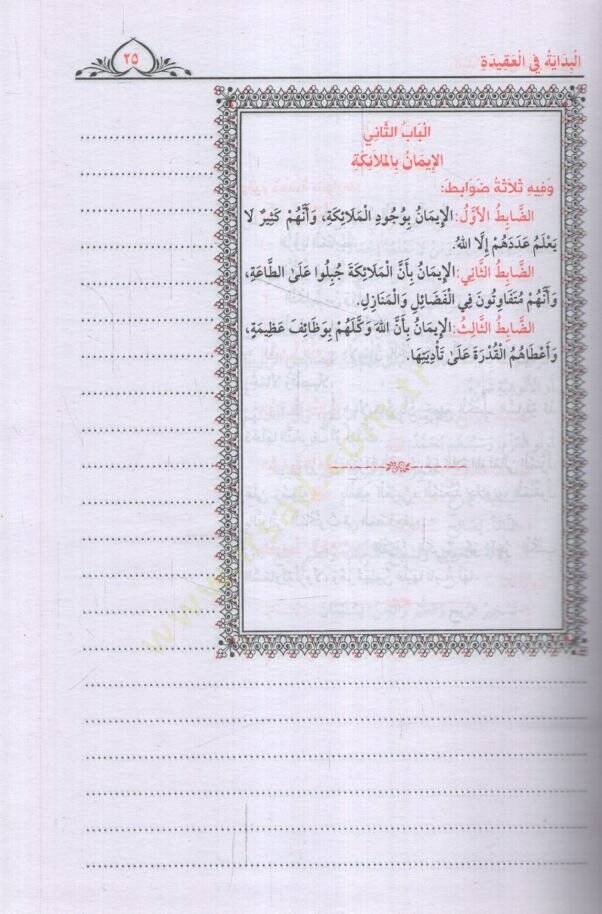 الْبِدَايَةُ فِي الْعَقِيدَةِ
٢٥
الْبَابُ الثَّانِي
الإِيمَانُ بِالمَلَائِكَةِ
وَفِيهِ ثَلَاثَةُ ضَوَابِطَ:
الضَّابِطُ الْأَوَّلُ: الْإِيمَانُ بِوُجُودِ الْمَلَائِكَةِ، وَأَنَّهُمْ كَثِيرٌ لَا
يَعْلَمُ عَدَدَهُمْ إِلَّا اللهُ.
الضَّابِطُ الثَّانِي: الْإِيمَانُ بِأَنَّ الْمَلَائِكَةَ جُبِلُوا عَلَى الطَّاعَةِ،
وَأَنَّهُمْ مُتَفَاوِتُونَ فِي الْفَضَائِلِ وَالْمَنَازِلِ.
الضَّابِطُ الثَّالِثُ: الْإِيمَانُ بِأَنَّ اللهَ وَكَّلَهُمْ بِوَظَائِفَ عَظِيمَةٍ،
وَأَعْطَاهُمُ الْقُدْرَةَ عَلَى تَأْدِيَتِهَا.